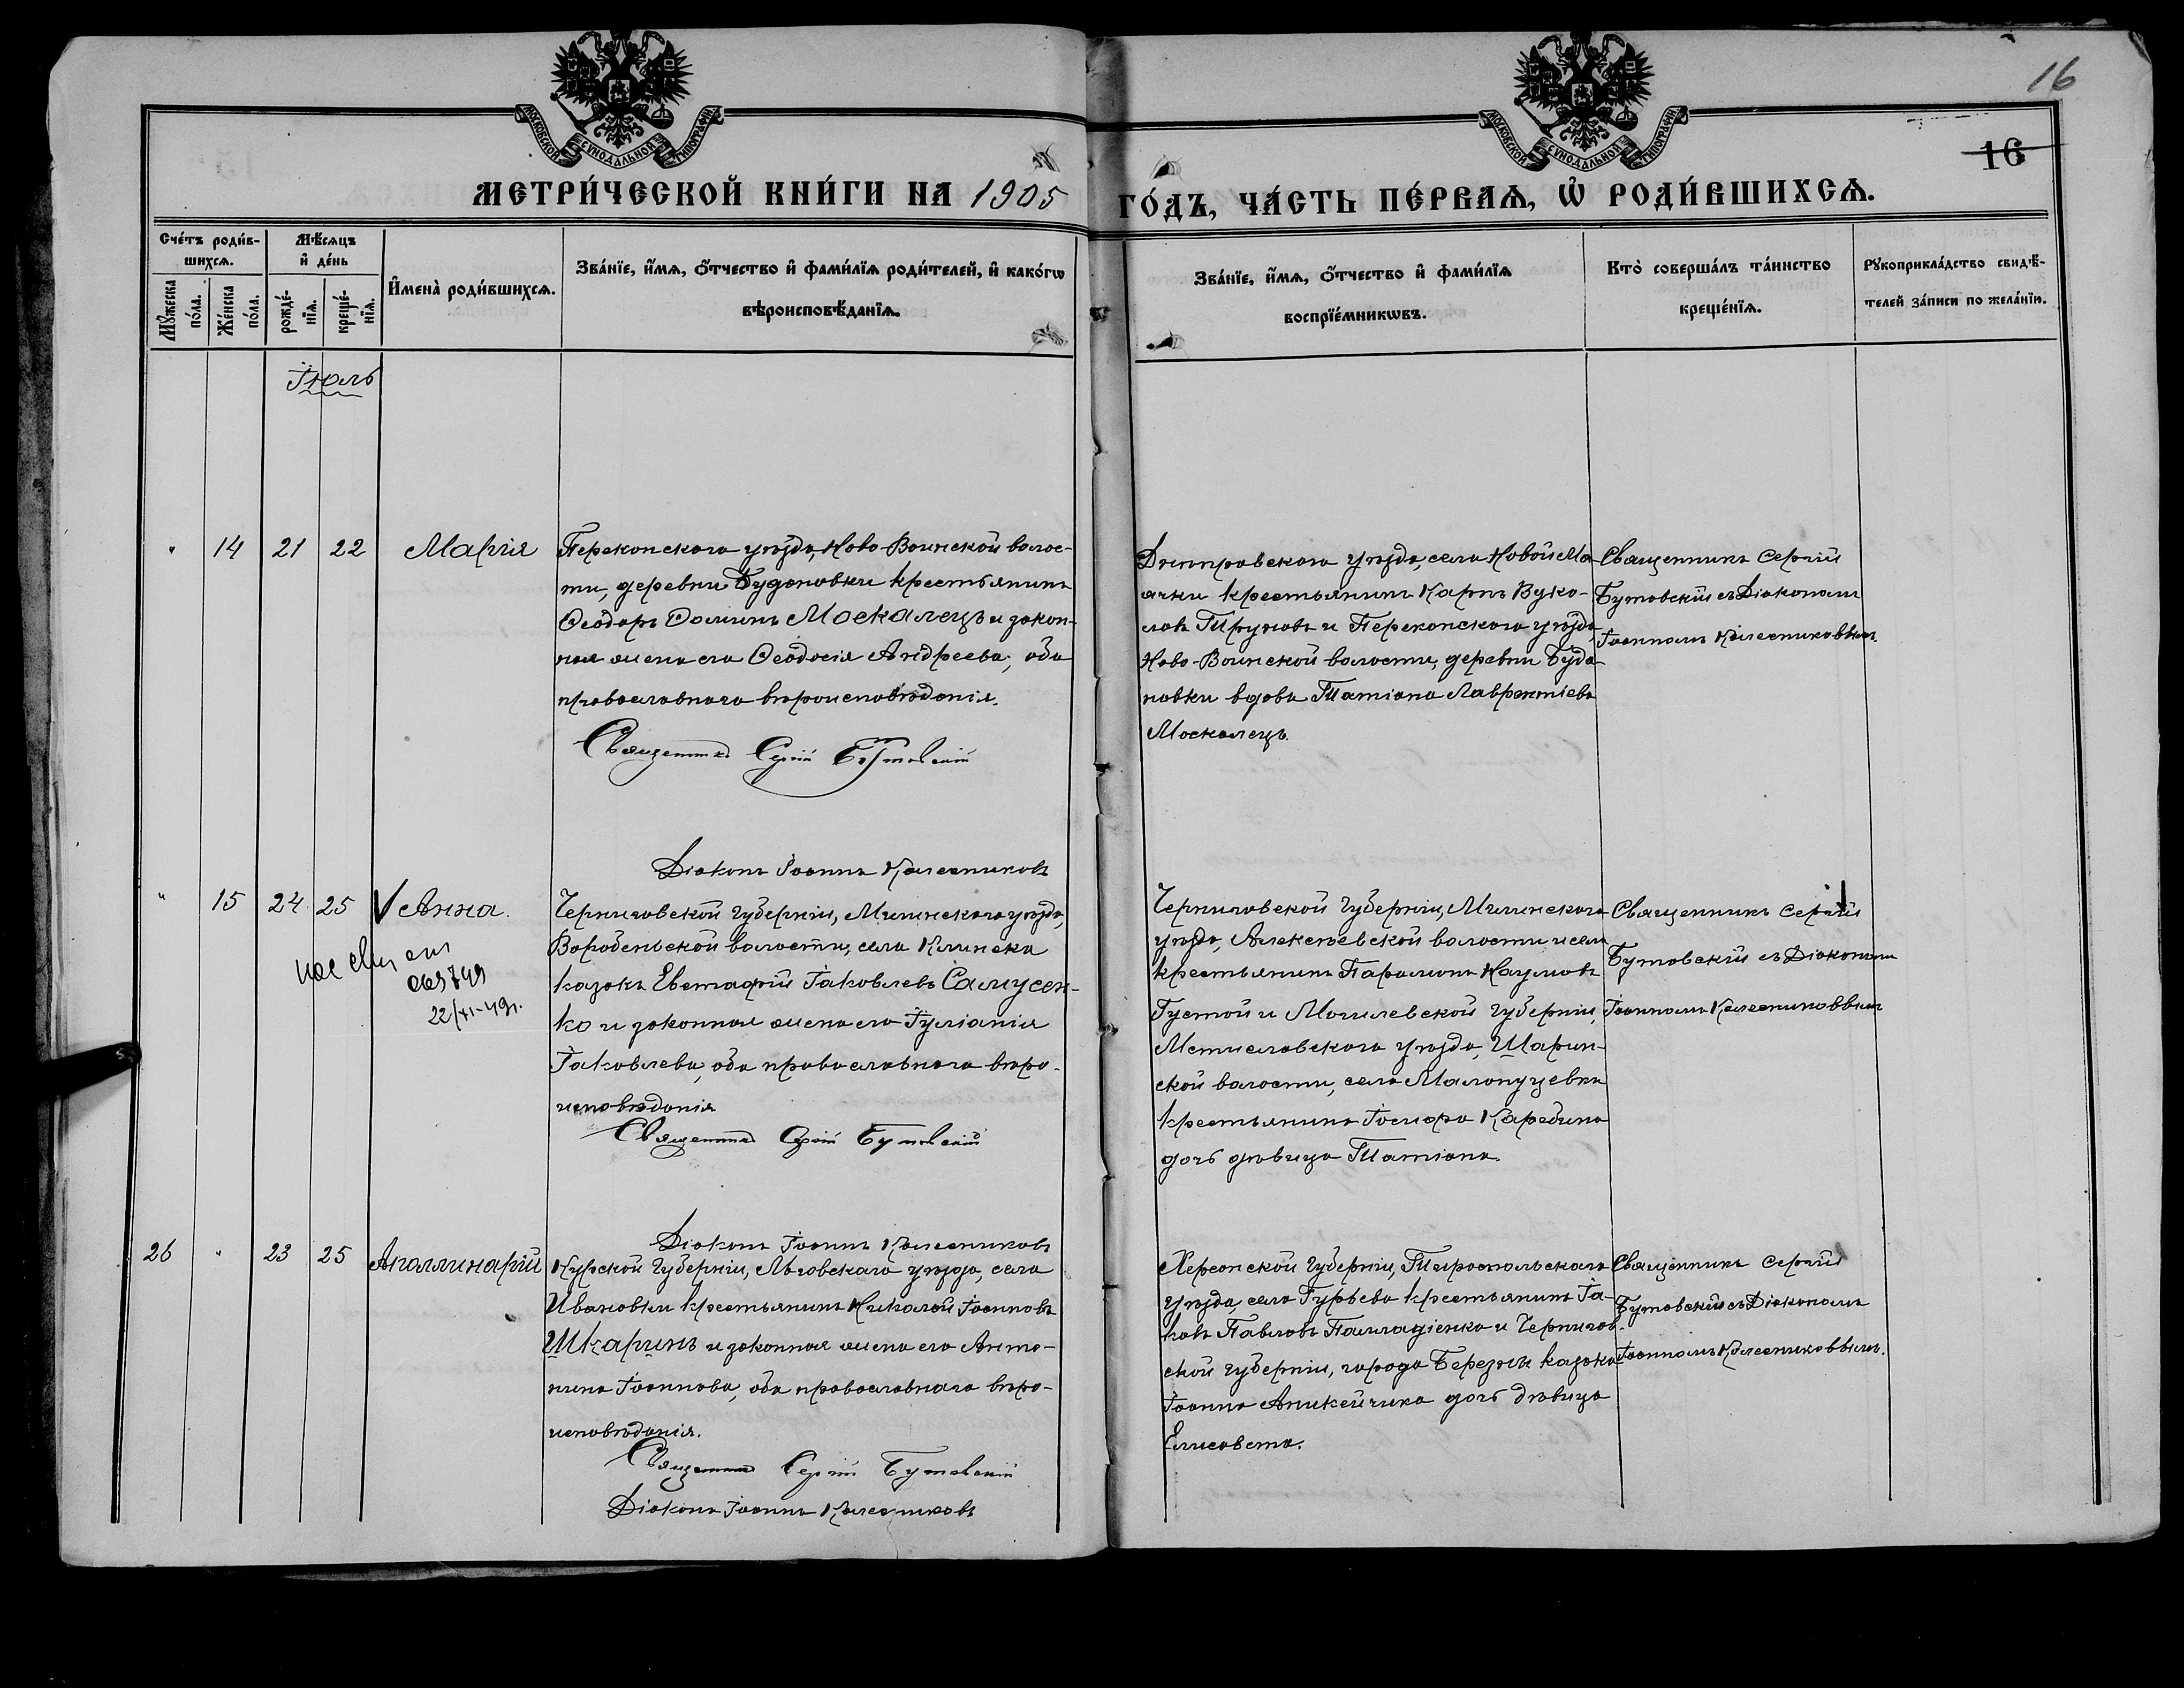 16
16
МОСКОВСКОЙ СѴНОДАЛЬНОЙ ТИПОГРАФІИ
МОСКОВСКОЙ СѴНОДАЛЬНОЙ ТИПОГРАФІИ
МЕТРИ́ЧЕСКОЙ КНИ́ГИ НА 1905 ГО́ДЪ, ЧА́СТЬ ПЕ́РВАѦ, Ѡ҆ РОДИ́ВШИХСѦ.
Сче́тъ роди́в-
шихсѧ.
Мꙋ́жеска
по́ла.
Же́нска
по́ла.
Мѣ́сѧцъ
и҆ де́нь
рожде́-
нїѧ.
креще́-
нїѧ.
И҆мена̀ роди́вшихсѧ.
Зва́нїе, и҆́мѧ, ѻ҆́тчество и҆ фами́лїѧ роди́телей, и҆ како́гѡ
вѣроисповѣ́данїѧ.
Зва́нїе, и҆́мѧ, ѻ҆́тчество и҆ фами́лїѧ
воспрїе́мникѡвъ.
Кто̀ соверша́лъ та́инство
креще́нїѧ.
Рꙋкоприкла́дство свидѣ́-
телей за́писи по жела́нїю.
Іюль
" 14 21 22 Марія
Перекопскаго уѣзда, Ново-Воинской волос-
ти, деревни Будановки крестьянинъ
Ѳеодоръ Ѳоминъ Москалецъ и закон-
ная жена его Ѳеодосія Андреева, оба
православнаго вѣроисповѣданія.
Священникъ Сергій Бутовскій
Діаконъ Іоаннъ Колесниковъ
Днѣпровскаго уѣзда, села Новой Ма-
ячки крестьянинъ Карпъ Вуко-
ловъ Труновъ и Перекопскаго уѣзда,
Ново-Воинской волости, деревни Буда-
новки вдова Татіана Лаврентіева
Москалецъ.
Священникъ Сергій
Бутовскій съ Діакономъ
Іоанномъ Колесниковымъ.
" 15 24 25 Анна.
22/XI-49г.
Черниговской губерніи, Мглинскаго уѣзда,
волости, села
казакъ Евстафій Іаковлевъ Самусен-
ко и законная жена его Іуліанія
Іаковлева, оба православнаго вѣро-
исповѣданія
Священникъ Сергій Бутовскій
Діаконъ Іоаннъ Колесниковъ
Черниговской губерніи, Мглинскаго
уѣзда, Алексѣевской волости и села
крестьянинъ Парамонъ Наумовъ
Густой и Могилевской губерніи,
Мстиславскаго уѣзда, Шамин-
ской волости, села
крестьянина Іосифа Карабина
дочь дѣвица Татіана.
Священникъ Сергій
Бутовскій съ Діакономъ
Іоанномъ Колесниковымъ
26 " 23 25 Аполлинарій
Курской губерніи, Льговскаго уѣзда, села
Ивановки крестьянинъ Николай Іоанновъ
Шкаринъ и законная жена его Анто-
нина Іоаннова, оба православнаго вѣро-
исповѣданія.
Священникъ Сергій Бутовскій
Діаконъ Іоаннъ Колесниковъ
Херсонской губерніи, Тираспольскаго
уѣзда, села Гурьева крестьянинъ Іа-
ковъ Павловъ Палладіенко и Чернигов-
ской губерніи, города Березны казака
Іоанна Аникейчика дочь дѣвица
Елисавета.
Священникъ Сергій
Бутовскій съ Діакономъ
Іоанномъ Колесниковымъ.